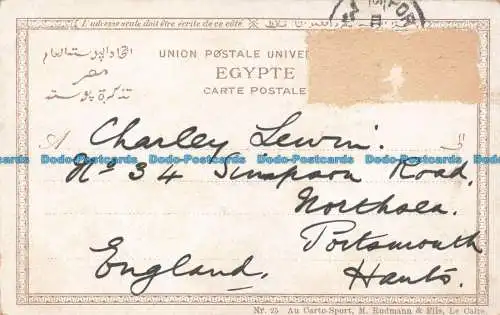 L'adresse seule doit être écrite de ce côté
FOR
UNION POSTALE UNIVER
اتحاد البوسته العام
EGYPTE
مصر
CARTE POSTALE
تذكرة بوسته
A Charley Lewin.
Nº 34 Simpson Road,
Northsea.
Portsmouth
England, Hants.
Dodo-Postcards Dodo-Postcards Dodo-Postcards Dodo-Postcards Dodo-Postcards
Nr. 25 Au Carto-Sport, M. Rudmann & Fils, Le Caire.